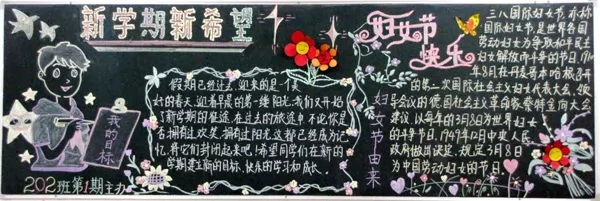 新学期新希望
我的目标
202班第1期主办
假期已经过去,迎来的是一个美
好的春天,迎着早晨的第一缕阳光,我们又开始
了新学期的征途.在过去的旅途中不论你是
否拥有过欢笑、拥有过阳光,这都已经成为记
忆,将它们封闭起来吧!希望同学们在新的
学期建立新的目标、快乐的学习和成长。
妇女节
快乐
妇女节由来
三八国际妇女节,亦称
国际妇女节,是世界各国
劳动妇女为争取和平民主
妇女解放而斗争的节日,1910
年8月在丹麦哥本哈根召开
的第二次国际社会主义妇女代表大会,领
导会议的德国社会主义革命家蔡特金向大会
建议,以每年的3月8日为世界妇女
的斗争节日,1949年12月中央人民
政府做出决定,规定3月8日
为中国劳动妇女的节日。